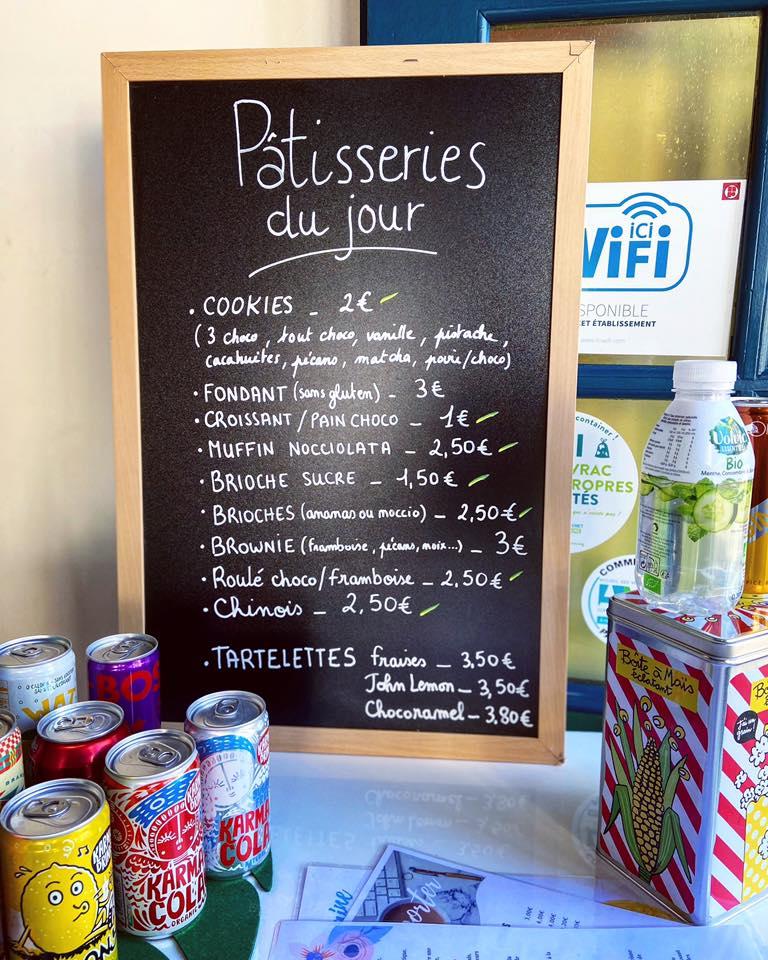 Pâtisseries
du jour
• COOKIES - 2€
(3 choco, tout choco, vanille, pistache,
cacahuètes, pécans, matcha, poire/choco)
• FONDANT (sans gluten) - 3€
• CROISSANT / PAIN CHOCO - 1€
• MUFFIN NOCCIOLATA - 2,50€
• BRIOCHE SUCRE - 1,50€
• BRIOCHES (ananas ou moccio) - 2,50€
• BROWNIE (framboise, pécans, noix...) - 3€
• Roulé choco/framboise - 2,50€
• Chinois - 2,50€
• TARTELETTES fraises - 3,50€
John Lemon - 3,50€
Chocoramel - 3,80€
ici
WiFi
SPONIBLE
ET ÉTABLISSEMENT
container!
VRAC
ROPRES
TÉS
COMM
Volvic
Bio
Boîte à Maïs
éclatant
KARMA
COLA
ORGANIC
KARMA
COLA
BOS